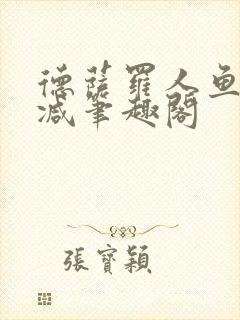 德薩羅人鱼
减筆趣閣
張寶穎